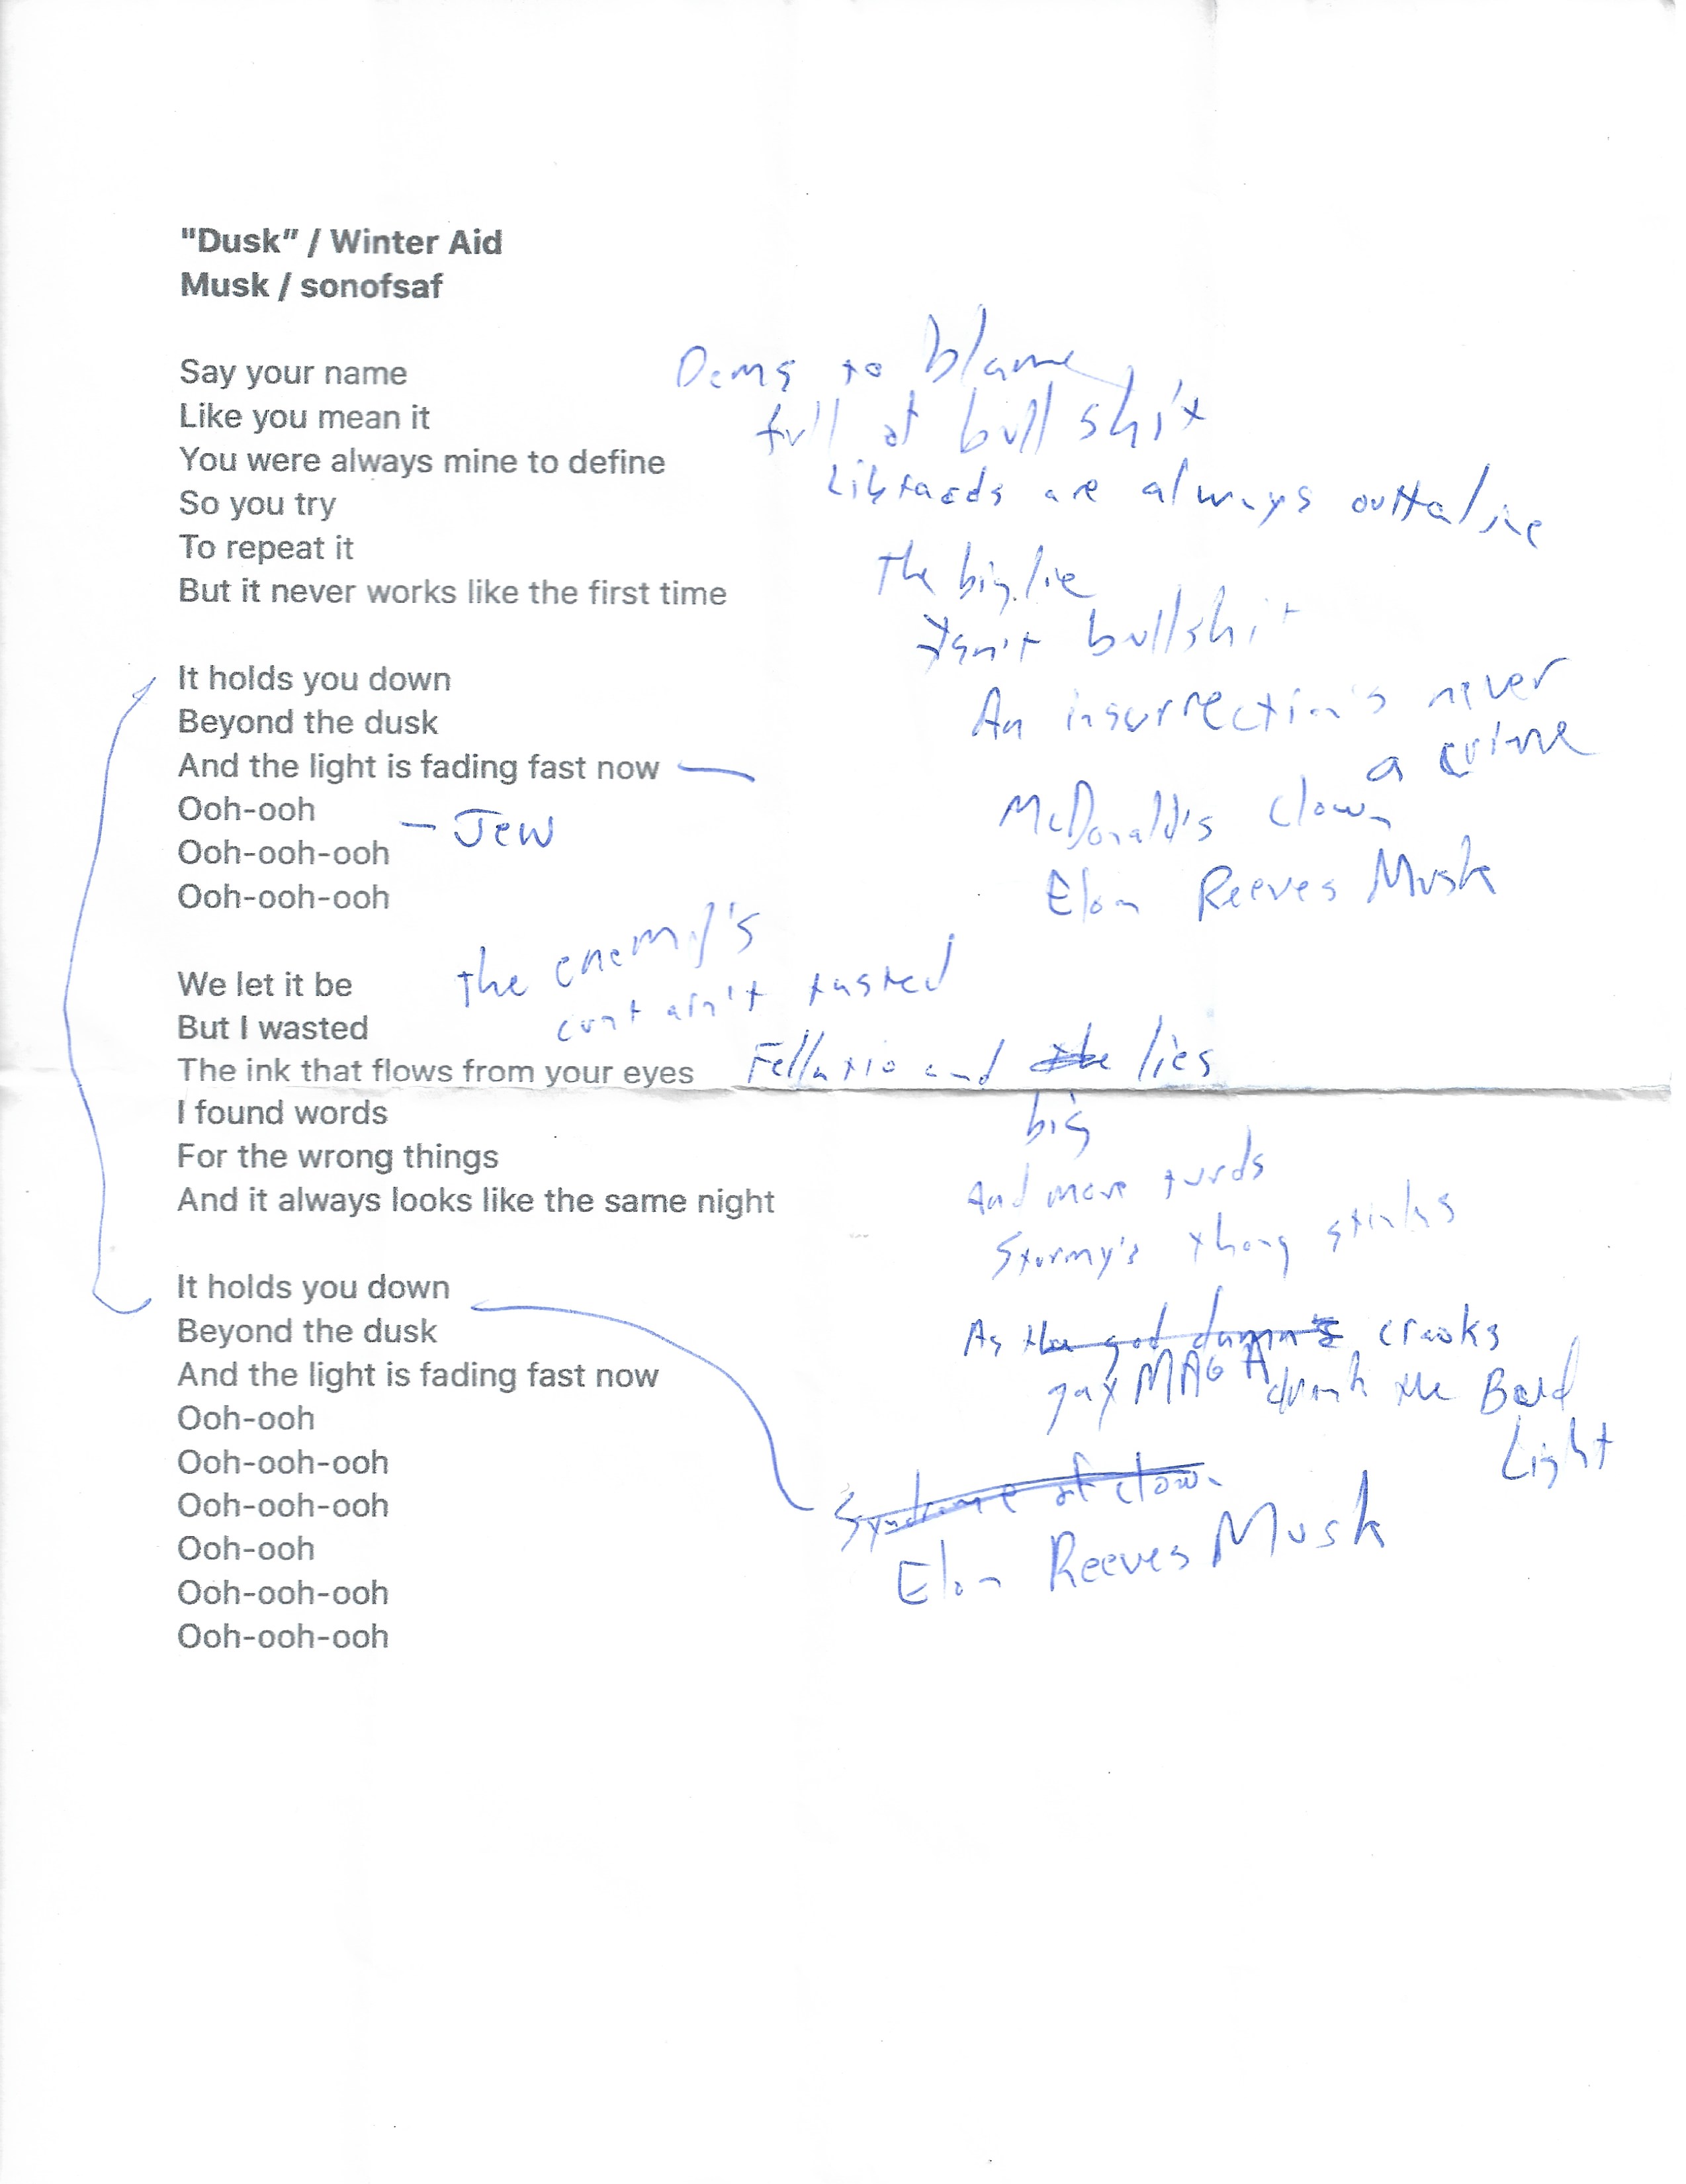 "Dusk” / Winter Aid
Musk / sonofsaf
Say your name
Like you mean it
You were always mine to define
So you try
To repeat it
But it never works like the first time
It holds you down
Beyond the dusk
And the light is fading fast now
Ooh-ooh
Ooh-ooh-ooh
Ooh-ooh-ooh
We let it be
But I wasted
The ink that flows from your eyes
I found words
For the wrong things
And it always looks like the same night
It holds you down
Beyond the dusk
And the light is fading fast now
Ooh-ooh
Ooh-ooh-ooh
Ooh-ooh-ooh
Ooh-ooh
Ooh-ooh-ooh
Ooh-ooh-ooh
Dems to blame
full of bull shit
Libtards are always outtaline
The big lie
Isn't bullshit
An insurrection's never
a crime
McDonald's clown
Elon Reeves Musk
- Jew
the enemy's
cunt ain't tasted
Fellatio and the lies
big
And more turds
Stormy's thong stinks
As the god damn crooks
gay MAGA drank the Bud
Light
Syndrome of clown
Elon Reeves Musk